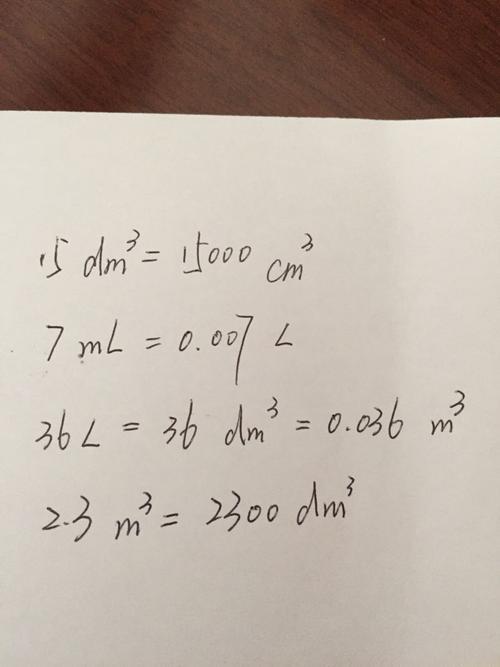 15 dm³ = 15000 cm³
7 mL = 0.007 L
36 L = 36 dm³ = 0.036 m³
2.3 m³ = 2300 dm³